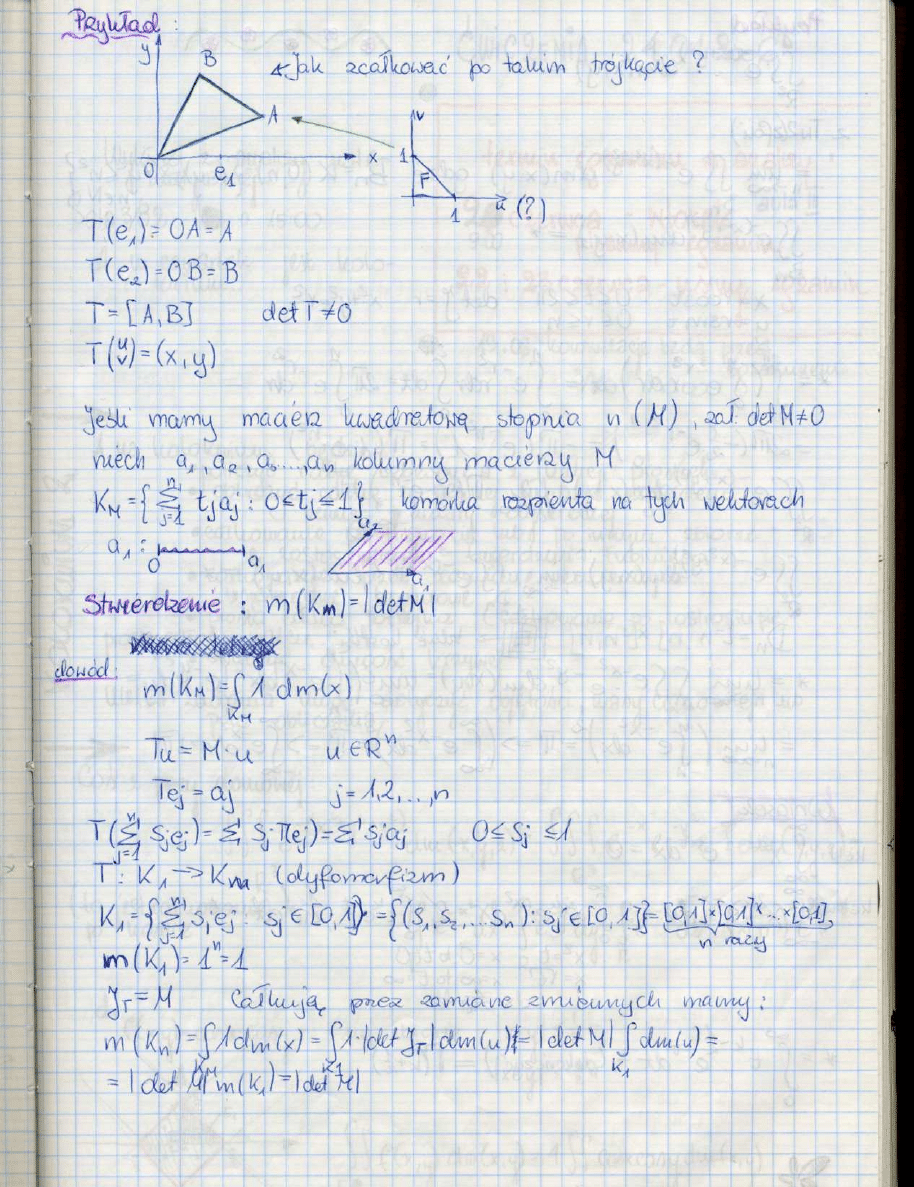 Przykład:
y
B
← Jak zcałkować po takim trójkącie?
A
v
0
e₁
x
1
F
1
u (?)
T(e₁)=OA=A
T(e₂)=OB=B
T=[A,B] det T≠0
T(u v)=(x,y)
Jeśli mamy macierz kwadratową stopnia n (M), zał. det M≠0
niech a₁,a₂,a₃...,aₙ kolumny macierzy M
K_M={∑ⁿⱼ₌₁ tⱼaⱼ : 0≤tⱼ≤1} komórka rozpienta na tych wektorach
a₁:
0
a₁
a₂
a₁
Stwierdzenie: m(K_m)=|det M|
dowód:
m(K_M)=∫_{K_M} 1 dm(x)
Tu=M·u u∈Rⁿ
Teⱼ=aⱼ j=1,2,...,n
T(∑ⁿⱼ₌₁ sⱼeⱼ)=∑ sⱼT(eⱼ)=∑ sⱼaⱼ 0≤sⱼ≤1
T: K₁→K_m (dyfomorfizm)
K₁={∑ⁿⱼ₌₁ sⱼeⱼ : sⱼ∈[0,1]}={(s₁,s₂,...sₙ): sⱼ∈[0,1]}=[0,1]×[0,1]×...×[0,1]
n razy
m(K₁)=1ⁿ=1
J_T=M Całkują przez zamiane zmiennych mamy:
m(K_n)=∫_{K_M} 1dm(x)=∫_{K₁} 1·|det J_T|dm(u)=|det M|∫_{K₁} dm(u)=
=|det M|m(K₁)=|det M|